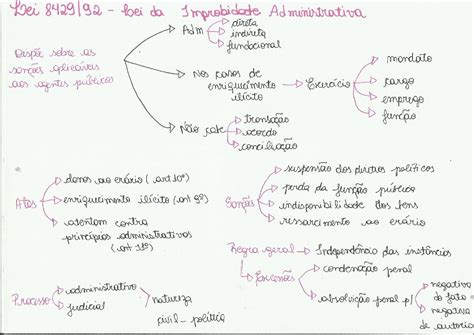 Lei 8429/92 - Lei da Improbidade Administrativa
Dispõe sobre as
sanções aplicáveis
aos agentes públicos
Adm
direta
indireta
fundacional
Nos casos de
enriquecimento
ilícito
Exercício
mandato
cargo
emprego
função
Não cabe
transação
acordo
conciliação
Atos
danos ao erário (art 10º)
enriquecimento ilícito (art 9º)
atentam contra
princípios administrativos
(art 11º)
Sanções
suspensão dos direitos políticos
perda da função pública
indisponibilidade dos bens
ressarcimento ao erário
Regra geral → Independência das instâncias
Exceções
condenação penal
absolvição penal p/
negativa
do fato
negativa
de autoria
Processo
administrativo
judicial
natureza
civil-política